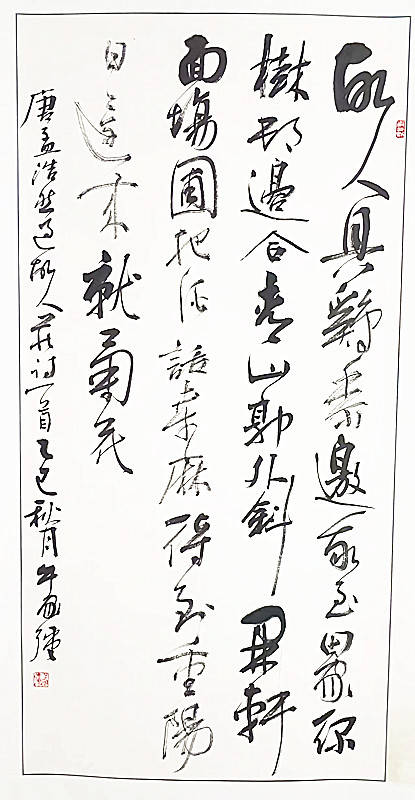 故人具鷄黍邀我至田家綠
樹邨邊合青山郭外斜開軒
面場圃把酒話桑麻待到重陽
日還來就菊花
唐孟浩然過故人莊詩一首乙巳秋月